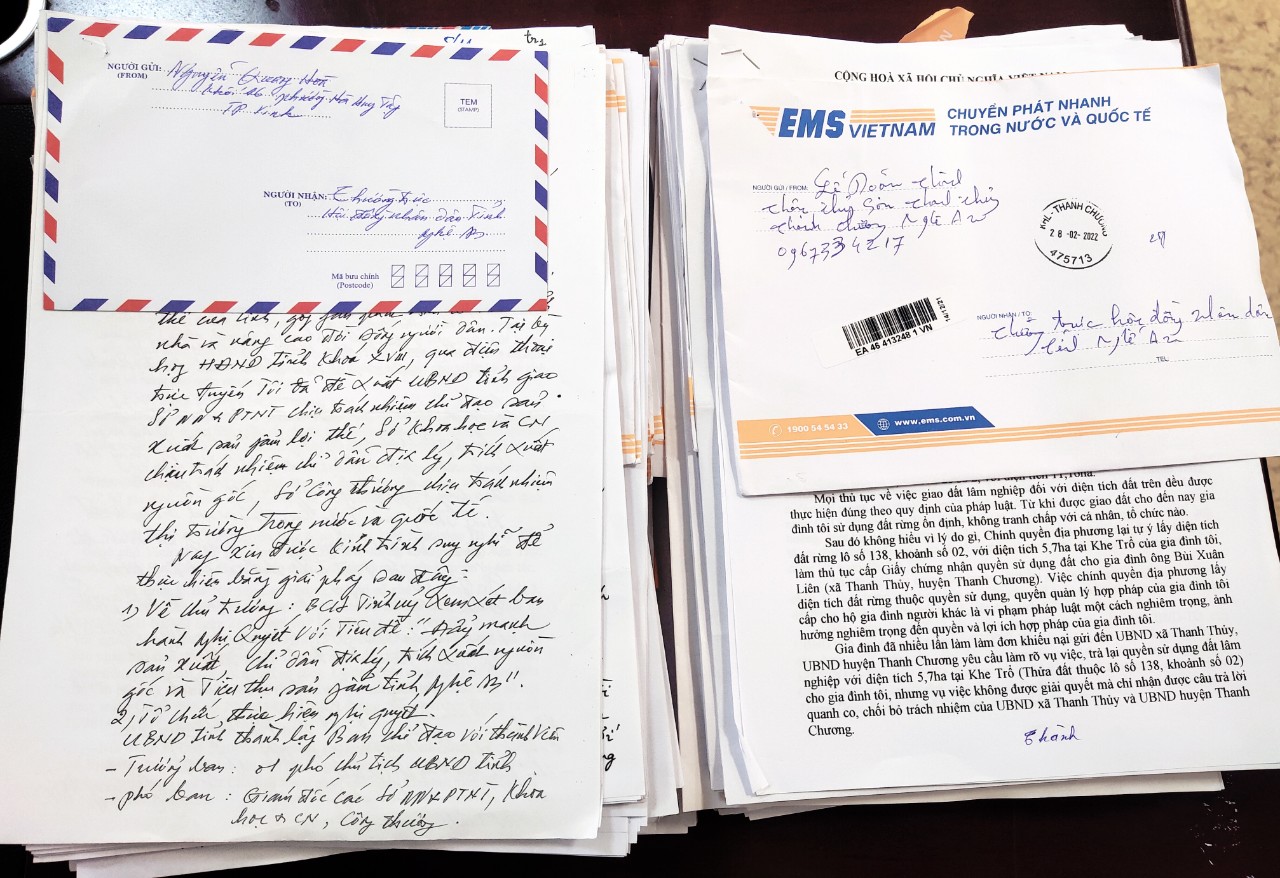 tr1
NGƯỜI GỬI: Nguyễn Quang Hoà
(FROM)
Khối 26 phường Hà Huy Tập
TP Vinh
TEM
(STAMP)
NGƯỜI NHẬN: Thường trực
(TO)
Hội đồng nhân dân Tỉnh
Nghệ An
Mã bưu chính
(Postcode)
nhà và nâng cao đời sống người dân. Tại kỳ
họp HĐND tỉnh Khoá XVIII, qua điện thoại
trực tuyến Tôi đã đề xuất UBND tỉnh giao
Sở NN & PTNT chịu trách nhiệm chỉ đạo sản
xuất sản phẩm lợi thế, Sở Khoa học và CN
chịu trách nhiệm chỉ dẫn địa lý, trích xuất
nguồn gốc, Sở Công thương chịu trách nhiệm
thị trường trong nước và quốc tế.
Nay xin được kính trình suy nghĩ để
thực hiện bằng giải pháp sau đây:
1) Về chủ trương: BCH Tỉnh uỷ xem xét ban
hành Nghị quyết với Tiêu đề: "Đẩy mạnh
sản xuất, chỉ dẫn địa lý, trích xuất nguồn
gốc và Tiêu thụ sản phẩm tỉnh Nghệ An".
2) Tổ chức thực hiện nghị quyết
UBND tỉnh thành lập Ban chỉ đạo với thành viên
- Trưởng ban: 01 phó chủ tịch UBND tỉnh
- phó ban: Giám đốc các Sở NN & PTNT, Khoa
học & CN, Công thương.
CỘNG HOÀ XÃ HỘI CHỦ NGHĨA VIỆT NAM
EMS VIETNAM CHUYỂN PHÁT NHANH
TRONG NƯỚC VÀ QUỐC TẾ
NGƯỜI GỬI / FROM: Lê Doãn Thành
Thôn Thuỷ Sơn Thanh Thủy
Thanh Chương Nghệ An
0967334217
KHL - THANH CHƯƠNG
28 -02- 2022
475713
EA 46 413248 1 VN
NGƯỜI NHẬN / TO: Thường trực hội đồng nhân dân
tỉnh Nghệ An
TEL
1900 54 54 33 www.ems.com.vn
Mọi thủ tục về việc giao đất lâm nghiệp đối với diện tích đất trên đều được
thực hiện đúng theo quy định của pháp luật. Từ khi được giao đất cho đến nay gia
đình tôi sử dụng đất rừng ổn định, không tranh chấp với cá nhân, tổ chức nào.
Sau đó không hiểu vì lý do gì, Chính quyền địa phương lại tự ý lấy diện tích
đất rừng lô số 138, khoảnh số 02, với diện tích 5,7ha tại Khe Trổ của gia đình tôi,
làm thủ tục cấp Giấy chứng nhận quyền sử dụng đất cho gia đình ông Bùi Xuân
Liên (xã Thanh Thủy, huyện Thanh Chương). Việc chính quyền địa phương lấy
diện tích đất rừng thuộc quyền sử dụng, quyền quản lý hợp pháp của gia đình tôi
cấp cho hộ gia đình người khác là vi phạm pháp luật một cách nghiêm trọng, ảnh
hưởng nghiêm trọng đến quyền và lợi ích hợp pháp của gia đình tôi.
Gia đình đã nhiều lần làm làm đơn khiếu nại gửi đến UBND xã Thanh Thủy,
UBND huyện Thanh Chương yêu cầu làm rõ vụ việc, trả lại quyền sử dụng đất lâm
nghiệp với diện tích 5,7ha tại Khe Trổ (Thửa đất thuộc lô số 138, khoảnh số 02)
cho gia đình tôi, nhưng vụ việc không được giải quyết mà chỉ nhận được câu trả lời
quanh co, chối bỏ trách nhiệm của UBND xã Thanh Thủy và UBND huyện Thanh
Chương.
Thành